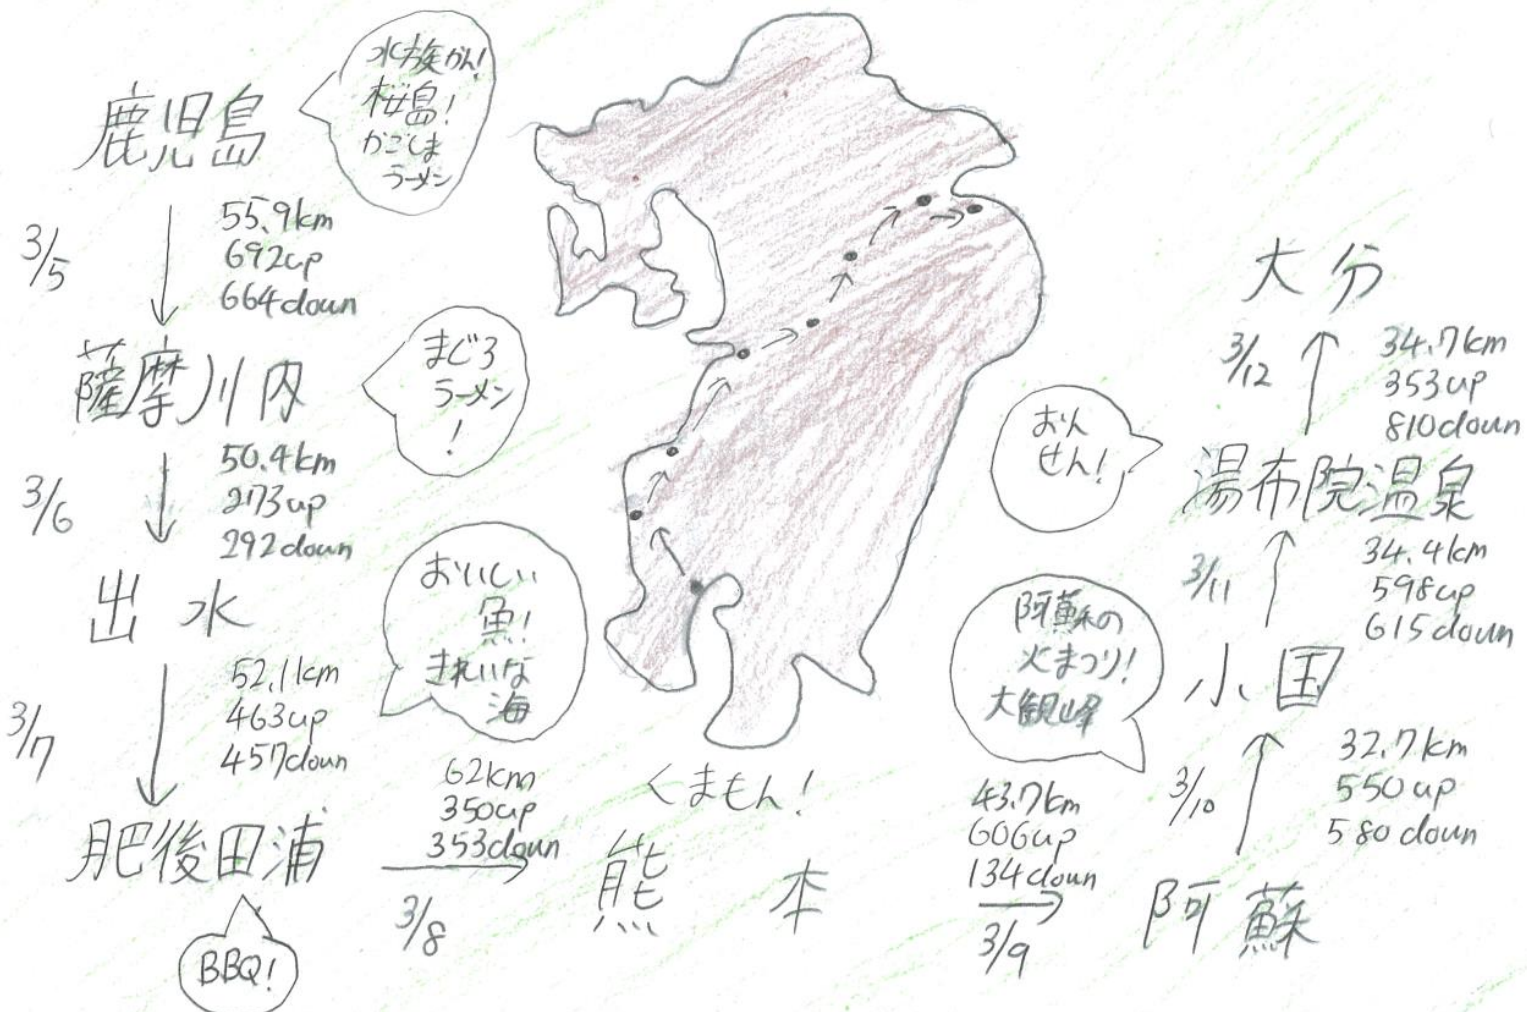 鹿児島
水族かん!
桜島!
かごしま
ラーメン
3/5
55.9km
692up
664down
薩摩川内
まぐろ
ラーメン
!
3/6
50.4km
273up
292down
出水
おいしい
魚!
きれいな
海
3/7
52.1km
463up
457down
肥後田浦
BBQ!
62km
350up
353down
3/8
くまもん!
熊本
43.7km
606up
134down
3/9
阿蘇の
火まつり!
大観峰
阿蘇
3/10
32.7km
550up
580down
小国
3/11
34.4km
598up
615down
湯布院温泉
おん
せん!
3/12
34.7km
353up
810down
大分